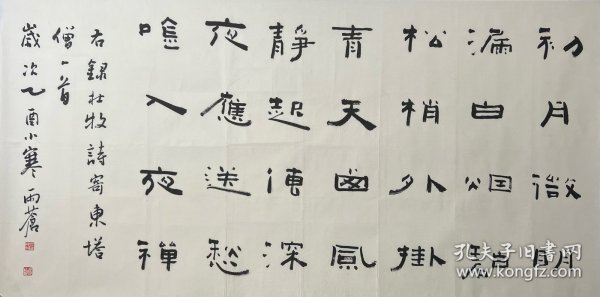 初月微明
漏白烟碧
松梢外掛
青天西風
靜起傳深
夜應送愁
唫入夜禪
右錄杜牧詩寄東塔
僧一首
歲次乙酉小寒雨蒼
孔夫子旧书网
www.kongfz.com